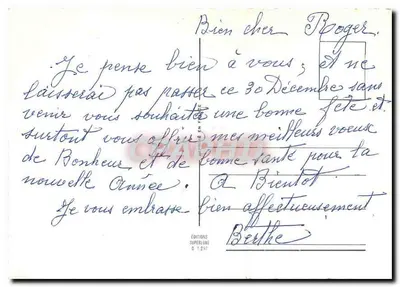 Bien cher Roger.
Je pense bien à vous, et ne
laisserai pas passer ce 30 Décembre sans
venir vous souhaiter une bonne fête et
surtout vous offrir mes meilleurs voeux
de Bonheur et de bonne santé pour la
nouvelle Année. A Bientot
Je vous embrasse bien affectueusement
Berthe